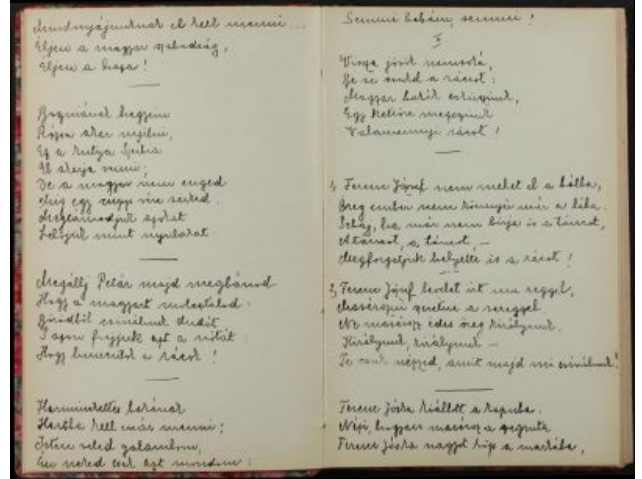 Mindnyájunknak el kell menni ...
Éljen a magyar szabadság,
Éljen a haza!
Boszniának hegyein
Rózsa akar nyílni,
Ez a kutya Szerbia
El akarja venni;
De a magyar nem enged
Míg egy csepp vére
Megtámadjuk azokat
Lelőjük mint nyulakat.
Megállj Péter majd megbánod
Hogy a magyart
Bőrödből csinálunk dudát
azt a nótát
Hogy huncut a rácot!
Harminckettes bakának
Harcba kell már menni;
Isten veled galambom,
Én neked csak azt mondom:
Semmi babám, semmi!
II
Vissza jövök nemsoká,
De se a rácot:
Magyar bakák esküszünk,
Egy kettőre megeszünk
Valamennyi rácot!
1, Ferenc József nem mehet el a bálba,
Öreg ember nem könnyű már a lába.
ha már nem bírja is a táncot,
A táncot, a táncot, —
Megforgatjuk helyette is a rácot!
2, Ferenc József levelet írt ma reggel,
a sereggel
Ne masírozz édes öreg királyunk.
Királyunk, királyunk —
Te csak nézzed, amit majd mi csinálunk!
Ferenc Jóska kiállott a kapuba.
Nézi, hogyan masíroz a regruta
Ferenc Jóska nagyot húz a markába,